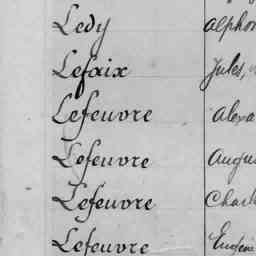 Ledy Alphon
Lefaix Jules,
Lefeuvre Alexa
Lefeuvre Augu
Lefeuvre Charl
Lefeuvre Eugène